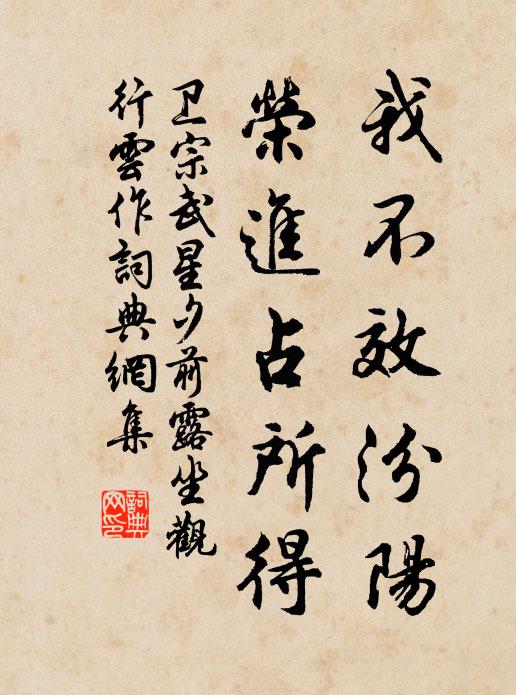 我不效汾陽
榮進占所得
卫宗武星夕前露坐觀
行雲作詞典網集
詞典網印